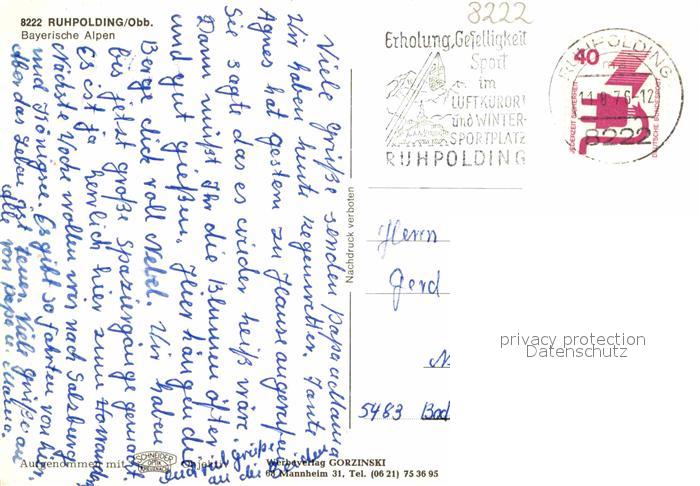 8222 RUHPOLDING/Obb.
Bayerische Alpen
8222
Erholung, Geselligkeit
Sport
im
LUFTKURORT
und WINTER-
SPORTPLATZ
RUHPOLDING
RUHPOLDING
40
8222
JEDERZEIT SICHERHEIT
DEUTSCHE BUNDESPOST
Viele Grüße senden Papa u Mama
Wir haben heute regenwetter. Tante
Agnes hat gestern zu Hause angerufen
Sie sagte das es wieder heiß wäre.
Dann müßt Ihr die Blumen öfter
und gut gießen. Hier hängen die
Berge dick voll Nebel. Wir haben
bis jetzt große Spaziergänge gemacht.
Es ist ja herrlich hier zum
Nächste Woche wollen wir nach Salzburg
und Königsee. Es gibt so fahrten von hier.
Aber das Leben ist teuer. Viele Grüße an
alle von Papa u. Mama.
und viel Grüße
an die Beiden
Nachdruck verboten
Herrn
Gerd
N
5483 Bad
privacy protection
Datenschutz
Aufgenommen mit SCHNEIDER OPTIK KREUZNACH Objektiv
Werbeverlag GORZINSKI
68 Mannheim 31, Tel. (06 21) 75 36 95